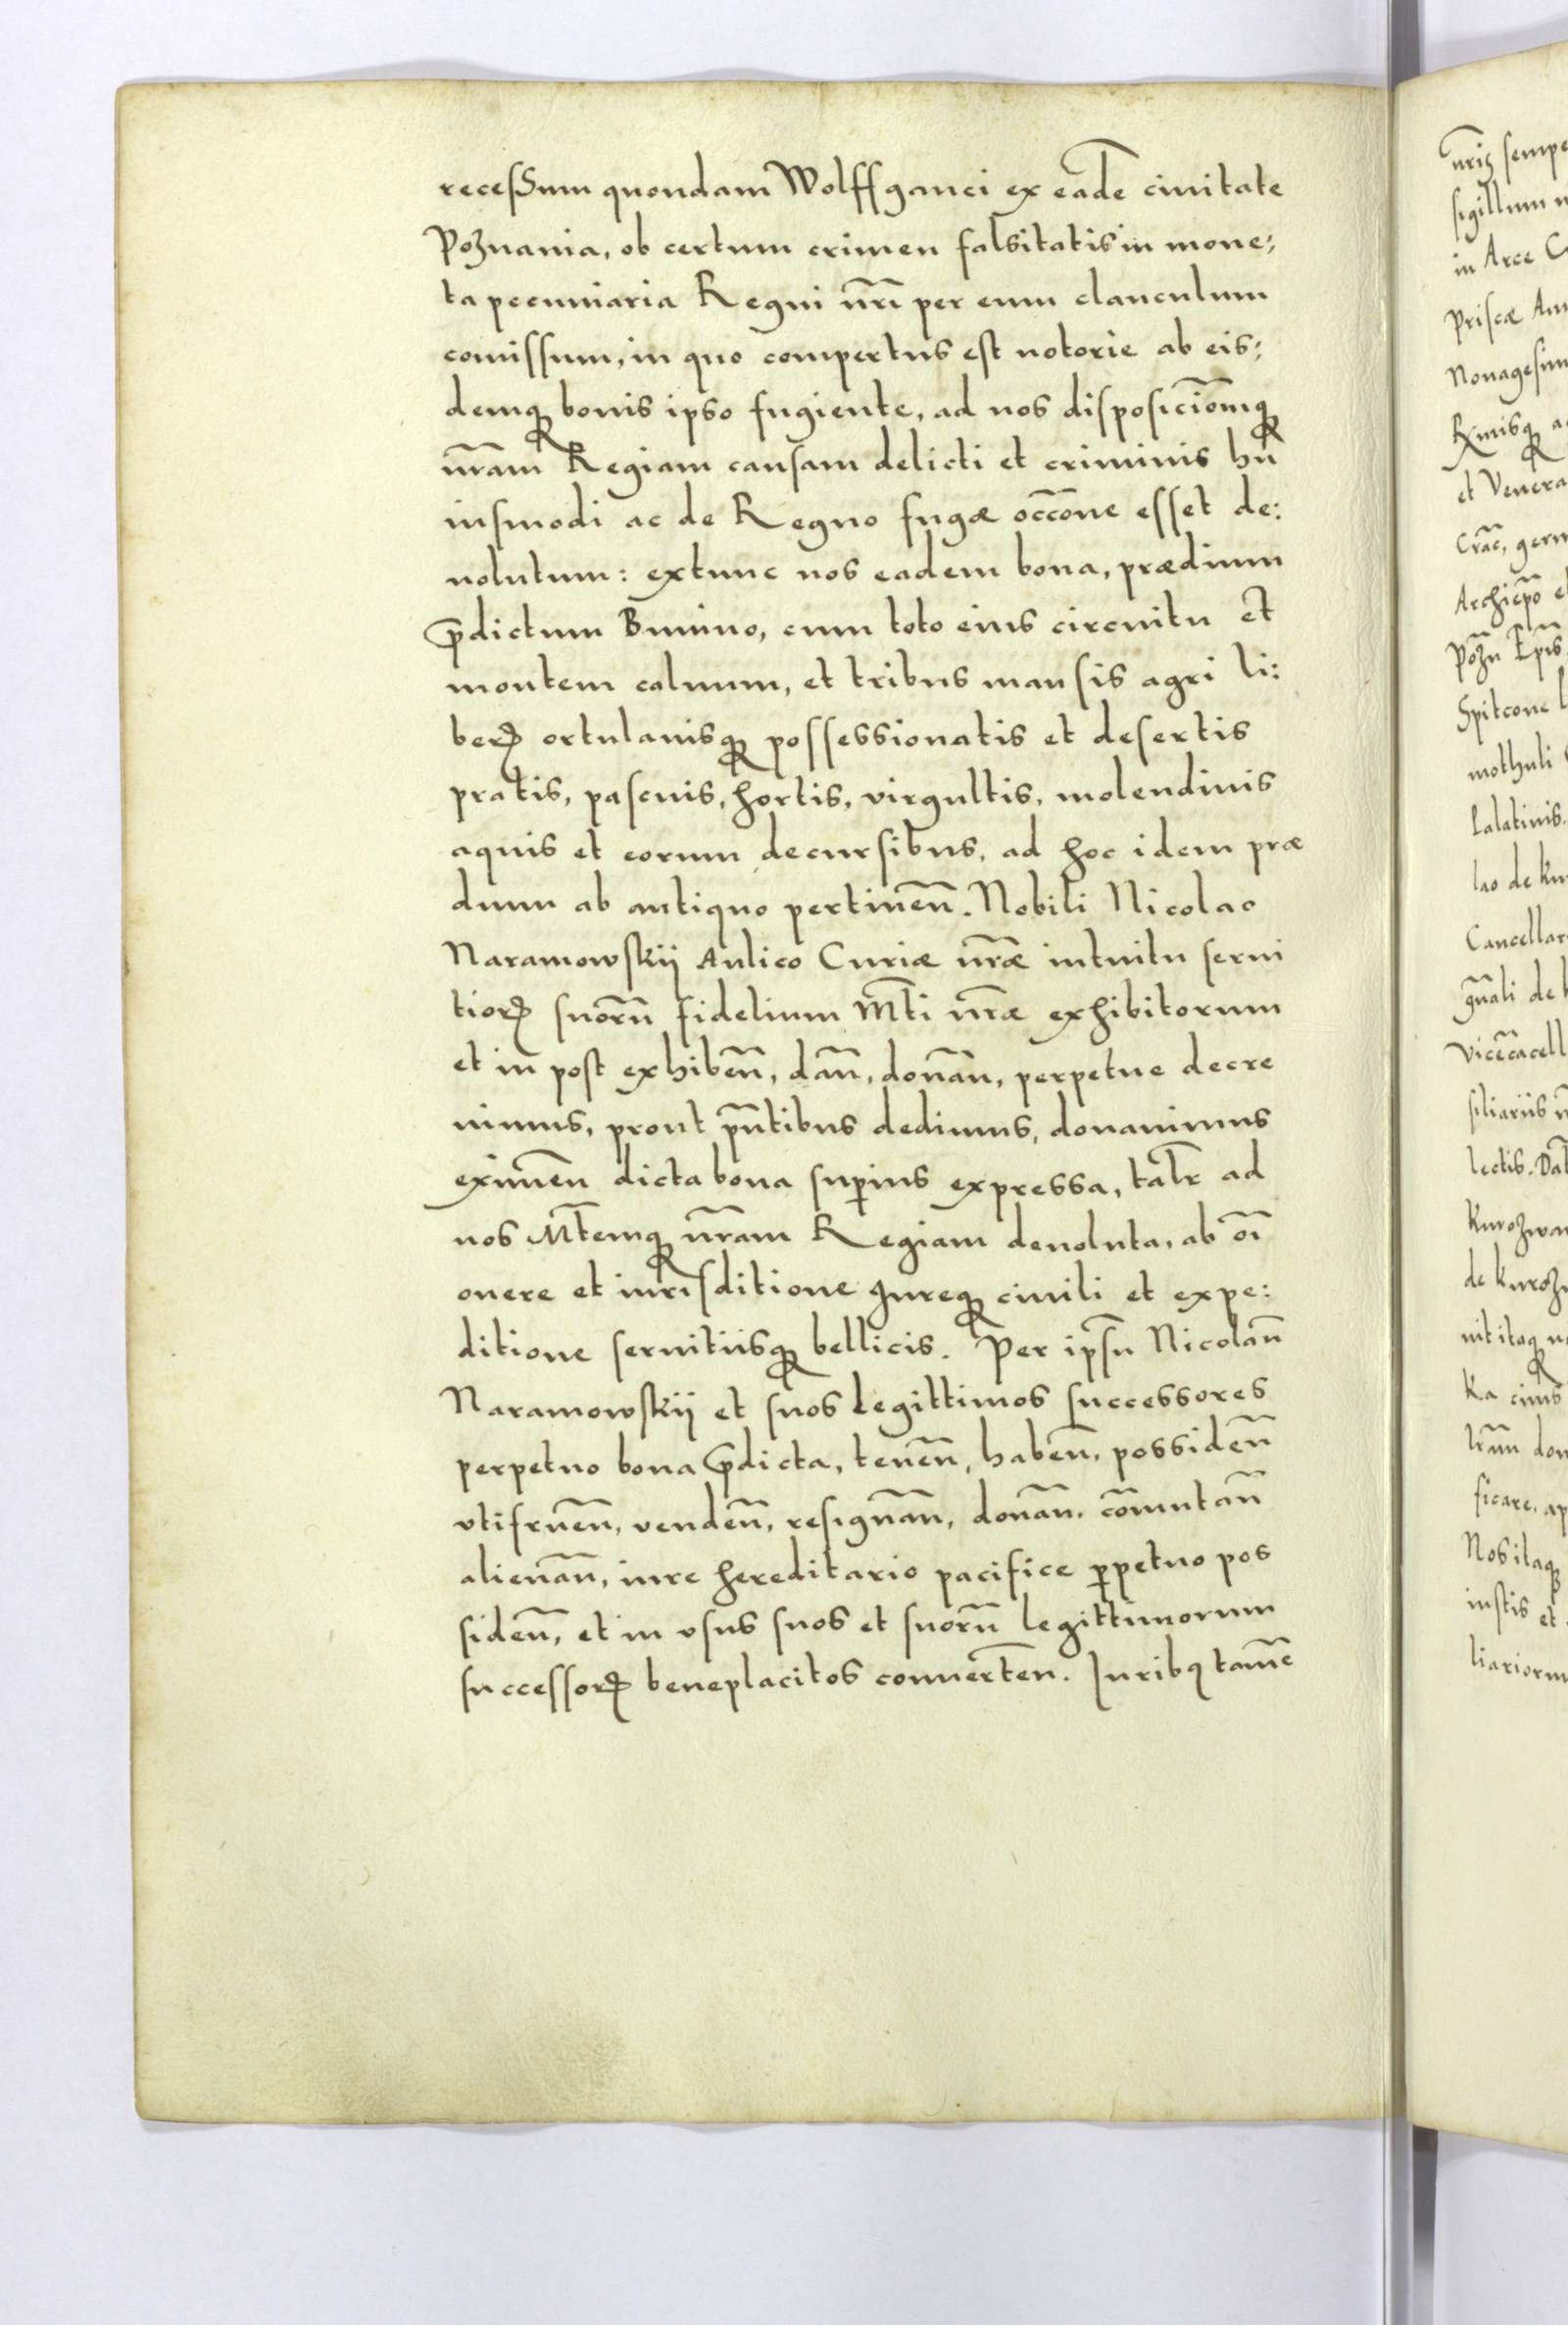 recessum quondam Wolffganci ex eadē ciuitate
Poznania, ob certum crimen falsitatis in mone:
ta pecuniaria Regni nr̃i per eum clanculum
comissum, in quo compertus est notorie ab eis:
demq̨ bonis ipso fugiente, ad nos disposiciõmq̨
nr̃am Regiam causam delicti et criminis hu
iusmodi ac de Regno fugæ occõne esset de:
uolutum: extunc nos eadem bona, prædium
p̃dictum Bnino, cum toto eius circuitu et
montem caluum, et tribus mansis agri li:
berꝝ ortulanisq̨ possessionatis et desertis
pratis, pascuis, hortis, virgultis, molendinis
aquis et eorum decursibus, ad hoc idem præ
dium ab antiquo pertineñ. Nobili Nicolao
Naramowskij Aulico Curiæ nr̃æ intuitu serui
tiorꝝ suorũ fidelium Mt̃i nr̃æ exhibitorum
et in post exhibeñ, dañ, donañ, perpetue decre
uimus, prout pñtibus dedimus, donauimus
eximeñ dicta bona superius expressa, talr̃ ad
nos Mt̃emq̨ nr̃am Regiam deuoluta, ab oĩ
onere et iurisditione Jureq̨ ciuili et expe:
ditione seruitiisq̨ bellicis. Per ipsũ Nicolaũ
Naramowskij et suos legittimos successores
perpetuo bona p̃dicta, teneñ, habeñ, possideñ
vtifrueñ, vendeñ, resignañ, donañ, cõmutañ
alienañ, iure hereditario pacifice ꝑpetuo pos
sideñ, et in vsus suos et suorũ legittimorum
successorꝝ beneplacitos conuerteñ. Iuribꝯ tamē
nr̃is sempe
sigillum
in Arce
Priscæ
Nonagesim
Rx̃misq̨
et Venera
Crac̃, germ
Archiep̃o
Pozñ Ep̃is
Spitcone
mothuli
lalatinis.
lao de
Cancellar
gñali de
Vicecãcell
siliariis
lectis. Dat̃
Kurozwan
de Kuroz
uit itaq̨
Ka ciuis
lr̃am don
ficare, ap
Nos itaq̨
iustis et
liariorum